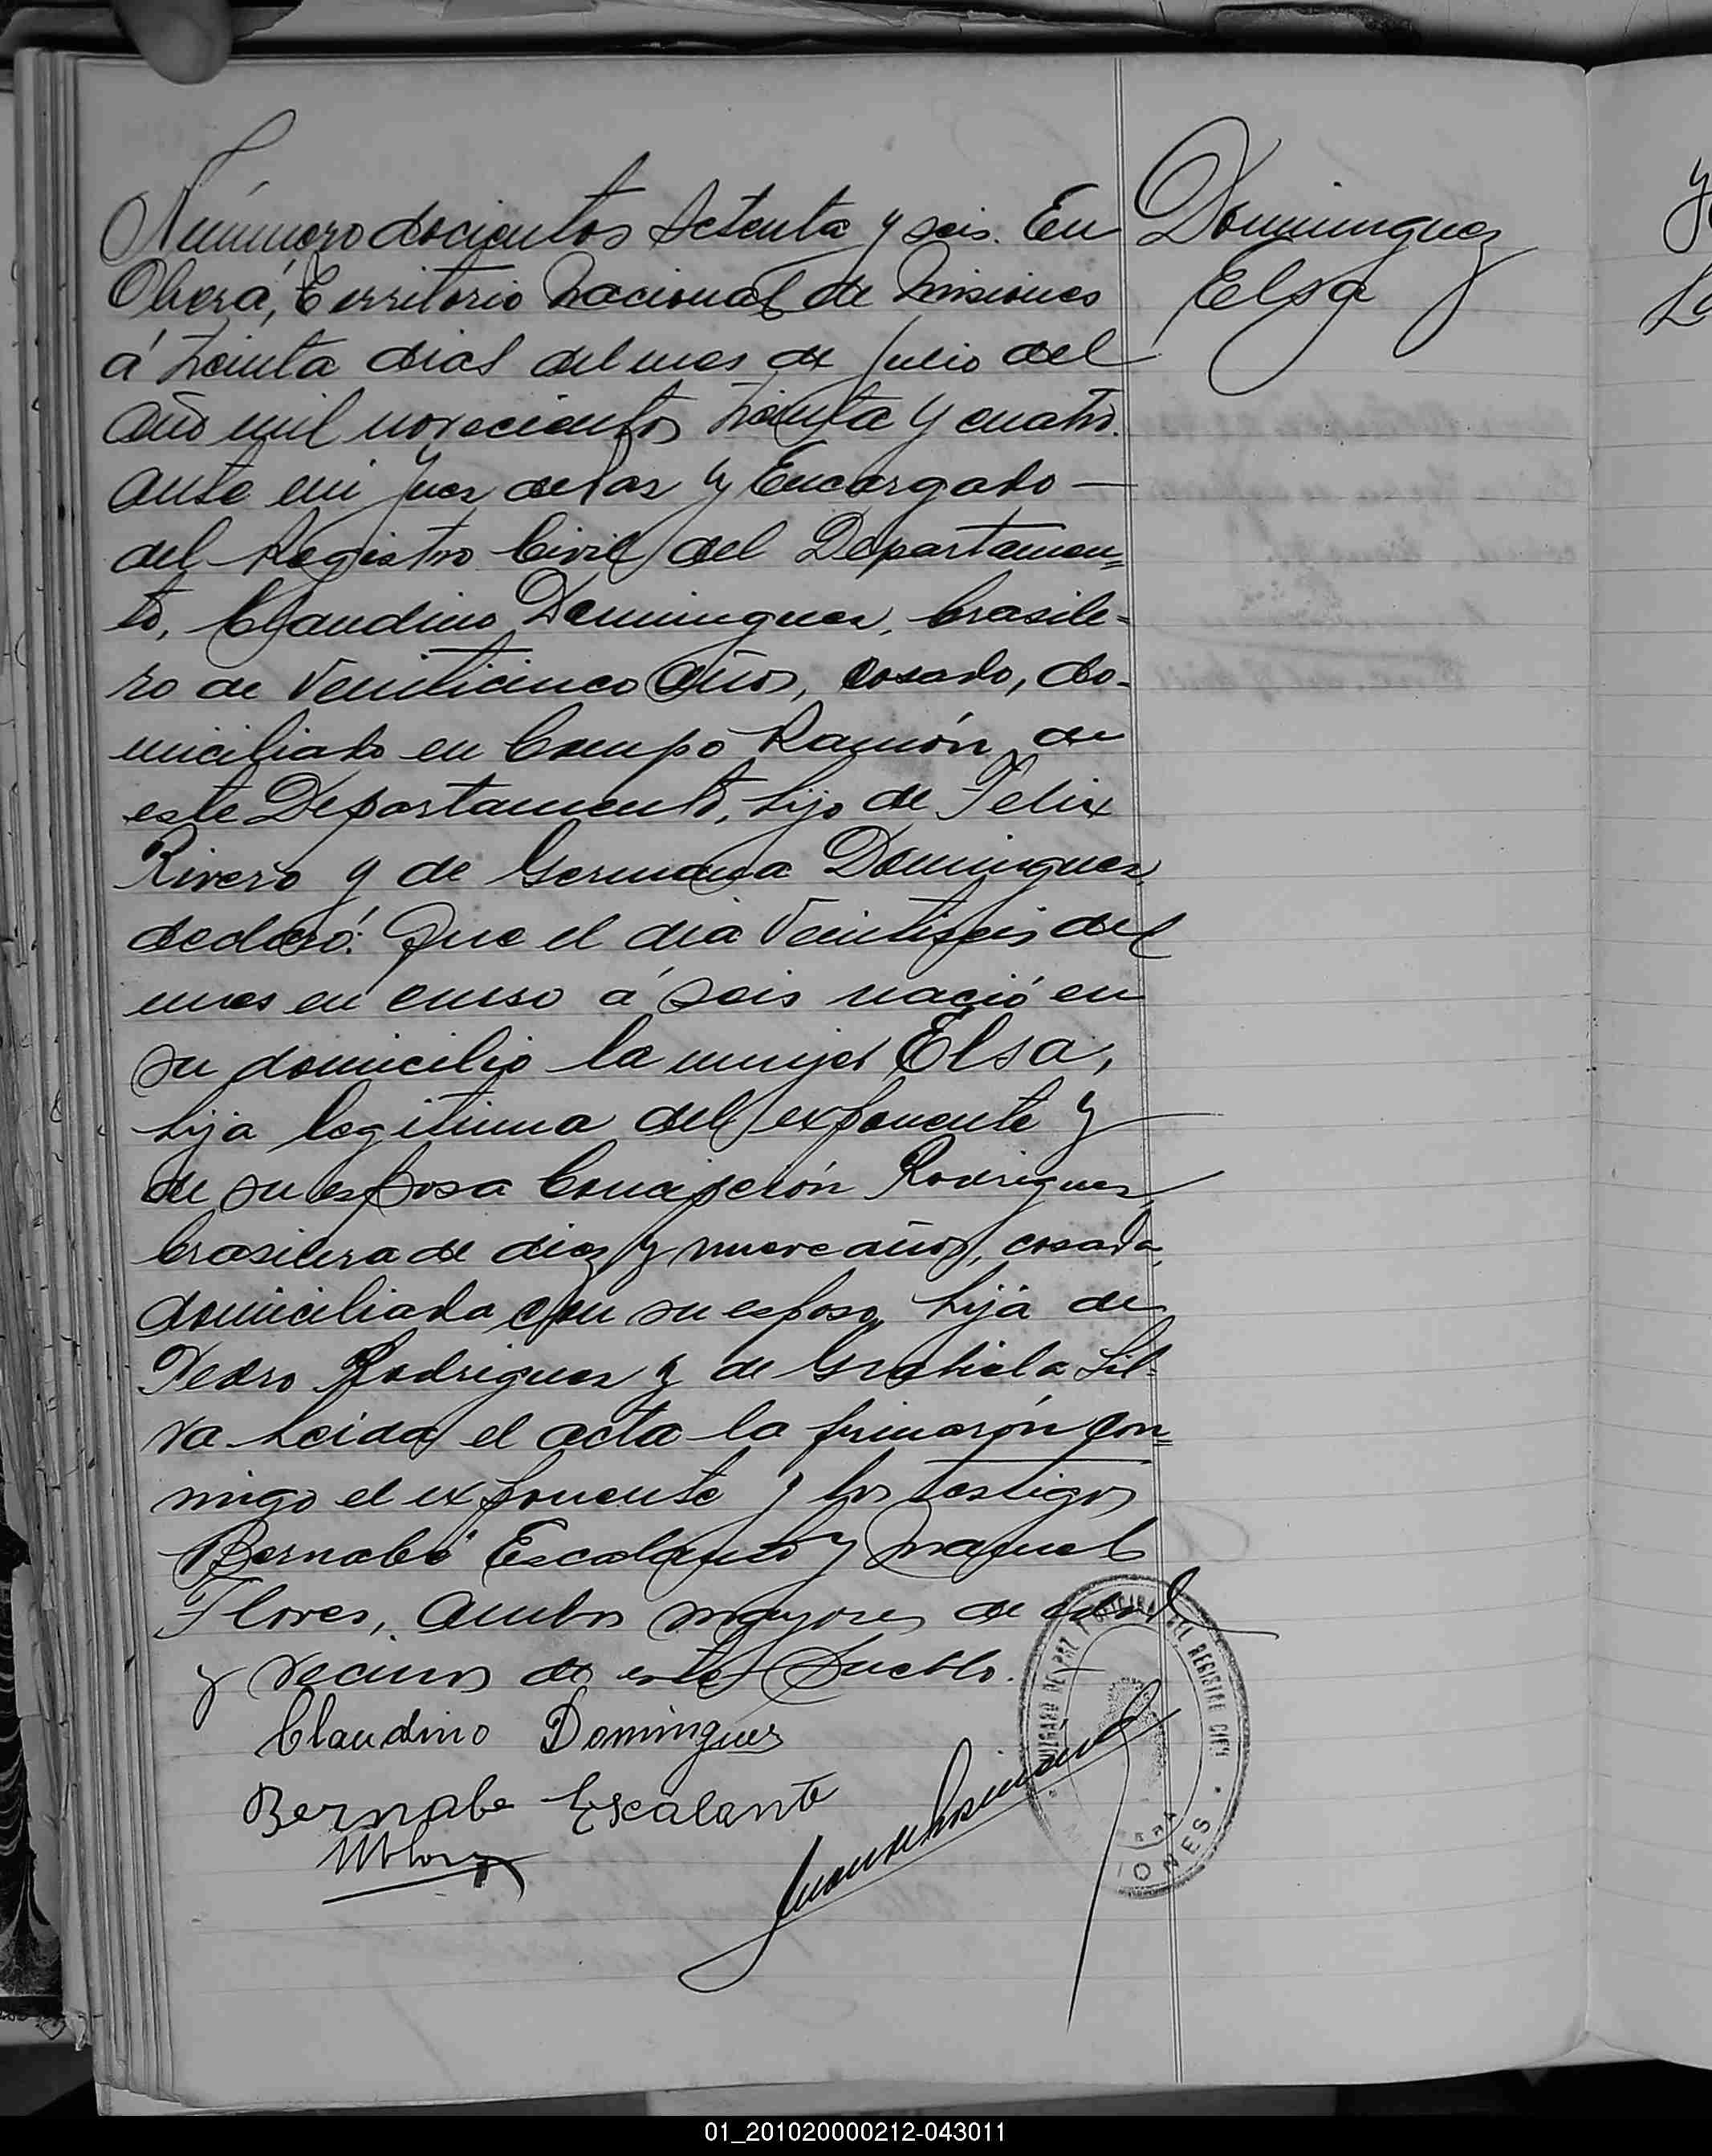 Número docientos setenta y seis. En
Oberá, Territorio Nacional de Misiones
á treinta dias del mes de Julio del
año mil novecientos treinta y cuatro.
ante mi Juez de Paz y Encargado —
del Registro Civil del Departamen=
to, Claudino Dominguez, brasile-
ro de veinticinco años, casado, do-
miciliado en Campo Ramón, de
este Departamento, hijo de Felix
Rivero y de Germana Dominguez,
declaró: Que el dia veintiseis del
mes en curso á seis nació en
su domicilio la mujer Elsa,
hija legitima del exponente y
de su esposa Concepción Rodriguez,
brasilera de diez y nueve años, casada,
domiciliada con su esposo, hija de
Pedro Rodriguez y de Grabiela Sil=
va Leida el acta la firmarón con=
migo el exponente y los testigos
Bernabé Escalante y Manuel
Flores, ambos mayores de edad
y vecinos de este Pueblo. —
Claudino Dominguez
Bernabe Escalante
Dominguez
Elsa
JUZGADO DE PAZ Y OFICINA DEL REGISTRO CIVIL
01_201020000212-043011